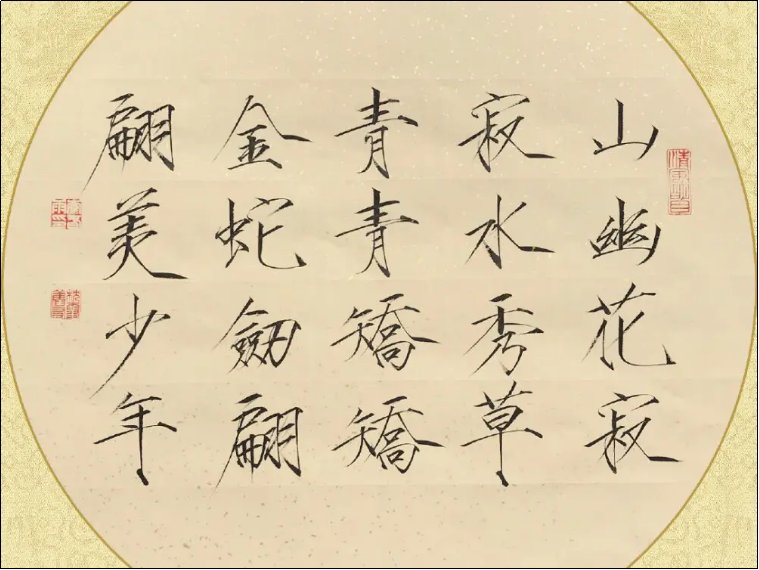 山幽花寂
寂水秀草
青青矯矯
金蛇劔翩
翩美少年